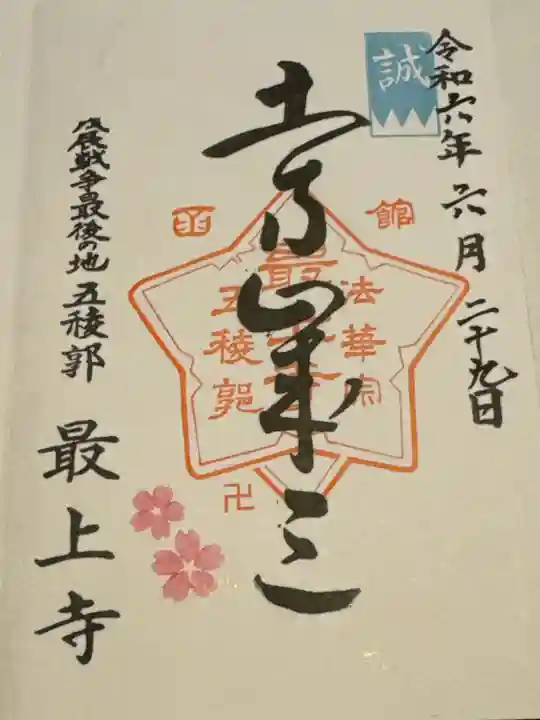 令和六年六月二十九日
誠
土方歳三
函館
法華宗
最上寺
五稜郭
卍
戊辰戦争最後の地 五稜郭
最上寺